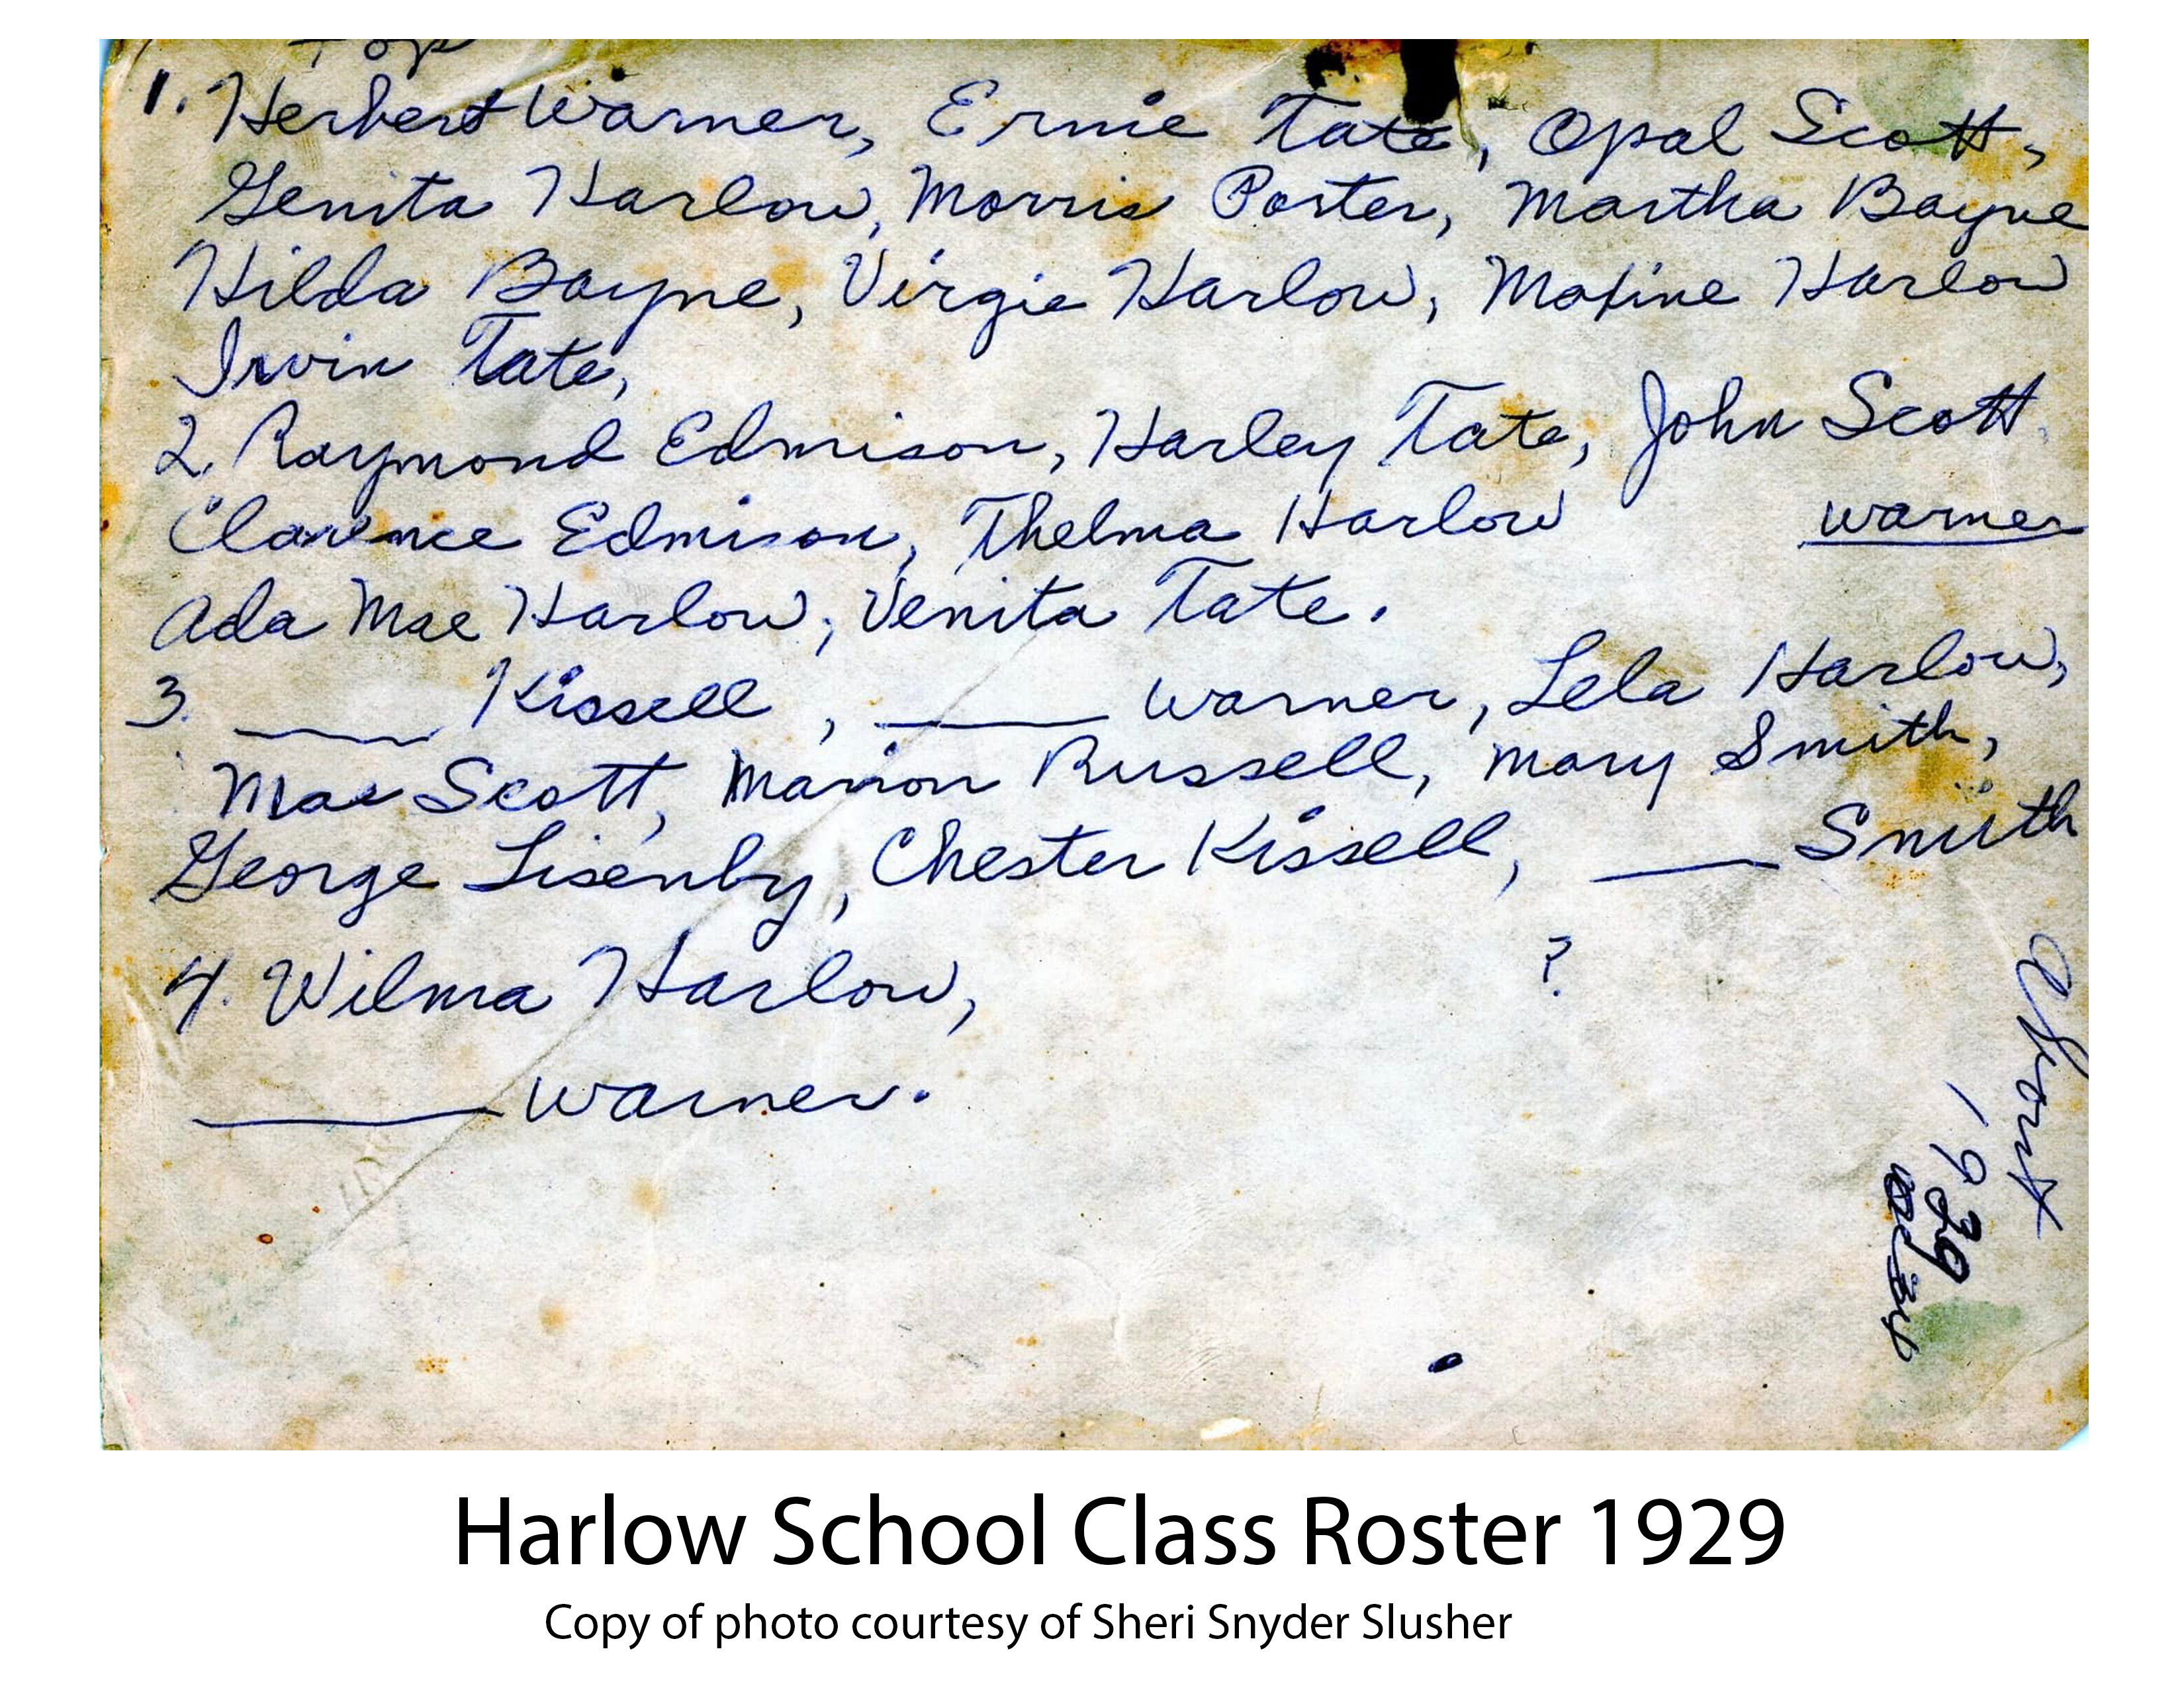 Top
1. Herbert Warner, Ernie Tate, Opal Scott,
Genita Harlow, Morris Porter, Martha Bayne
Hilda Bayne, Virgie Harlow, Maxine Harlow
Irvin Tate,
2. Raymond Edmison, Harley Tate, John Scott
Clarence Edmison, Thelma Harlow warner
Ada Mae Harlow, Venita Tate.
3. ____ Kissell, ____ warner, Lela Harlow,
Mae Scott, Marion Russell, Mary Smith,
George Lisenby, Chester Kissell, ____ Smith
4. Wilma Harlow, ?
____ warner.
About
1929
Harlow School Class Roster 1929
Copy of photo courtesy of Sheri Snyder Slusher